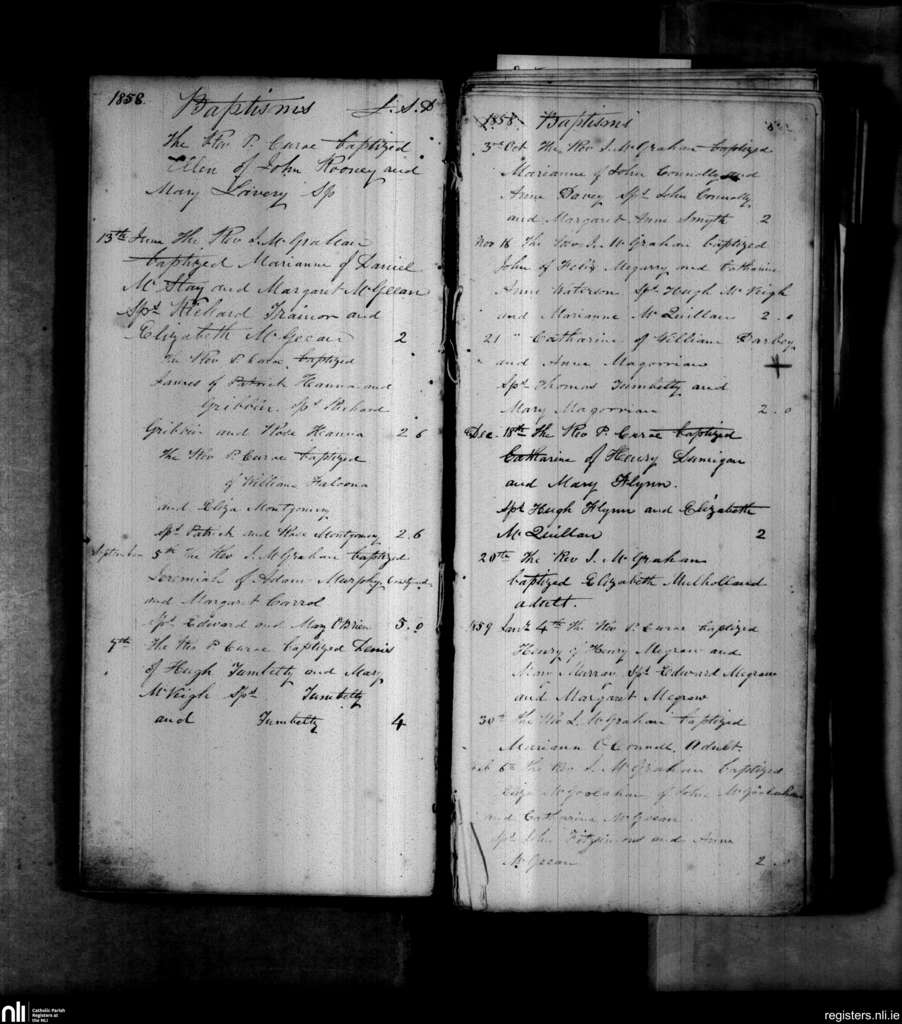 1858. Baptisms L. S. D
The Rev P. Curoe baptized
Ellen of John Rooney and
Mary Lavery Sp
13th June The Rev J. McGrahan
baptized Marianne of Daniel
McStay and Margaret McGeean
Sps Richard Trainor and
Elizabeth McGeean 2
The Rev P. Curoe baptized
James of Patrick Hanna and
Gribbin. Sps Richard
Gribbin and Rose Hanna 2 6
The Rev P. Curoe baptized
of William Faloona
and Eliza Montgomery
Sps Patrick and Rose Montgomery 2. 6
September 5th The Rev J. McGrahan baptized
Jeremiah of Adam Murphy
and Margaret Carrol
Sps. Edward and Mary O'Brien 5. 0
7th The Rev P Curoe baptized Denis
of Hugh Tumbelty and Mary
McVeigh Sps. Tumbelty
and Tumbelty 4
1858 Baptisms
3rd Oct The Rev J. McGrahan baptized
Marianne of John Connolly and
Anne Davey Sps John Connolly
and Margaret Anne Smyth 2
Nov 16 The Rev J. McGrahan baptized
John of Felix Megarry and Catharine
Anne Waterson Sps Hugh McVeigh
and Marianne McQuillan 2. 0
21 " Catharine of William Darby
and Anne Magorrian
Sps Thomas Tumbelty and
Mary Magorrian 2. 0
Dec. 18th The Rev P. Curoe baptized
Catharine of Henry Lunigan
and Mary Flynn.
Sps Hugh Flynn and Elizabeth
McQuillan 2
20th The Rev J. McGrahan
baptized Elizabeth Mulholland
adult.
1859 Jany 4th The Rev P. Curoe baptized
Henry of Henry Megraw and
Mary Marran Sps Edward Megraw
and Margaret Megraw
30th The Rev J. McGrahan baptized
Mariann O'Connell, Adult.
Feb 6th The Rev J. McGrahan baptized
Eliza of John
and Catharine McGeean
Sps John Fitzsimons and Anne
McGeean 2. 0
nli
Catholic Parish
Registers at
the NLI
registers.nli.ie